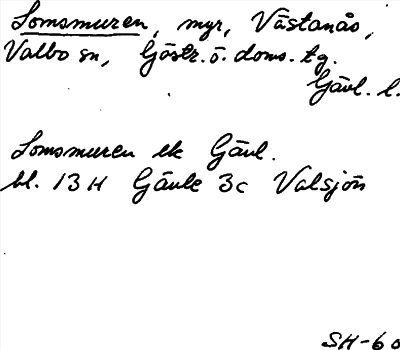 Lomsmuren, myr, Västanås,
Valbo sn, Gästr. ö. doms. tg.
Gävl. l.
Lomsmuren ek Gävl.
bl. 13 H Gävle 3c Valsjön
SH-60